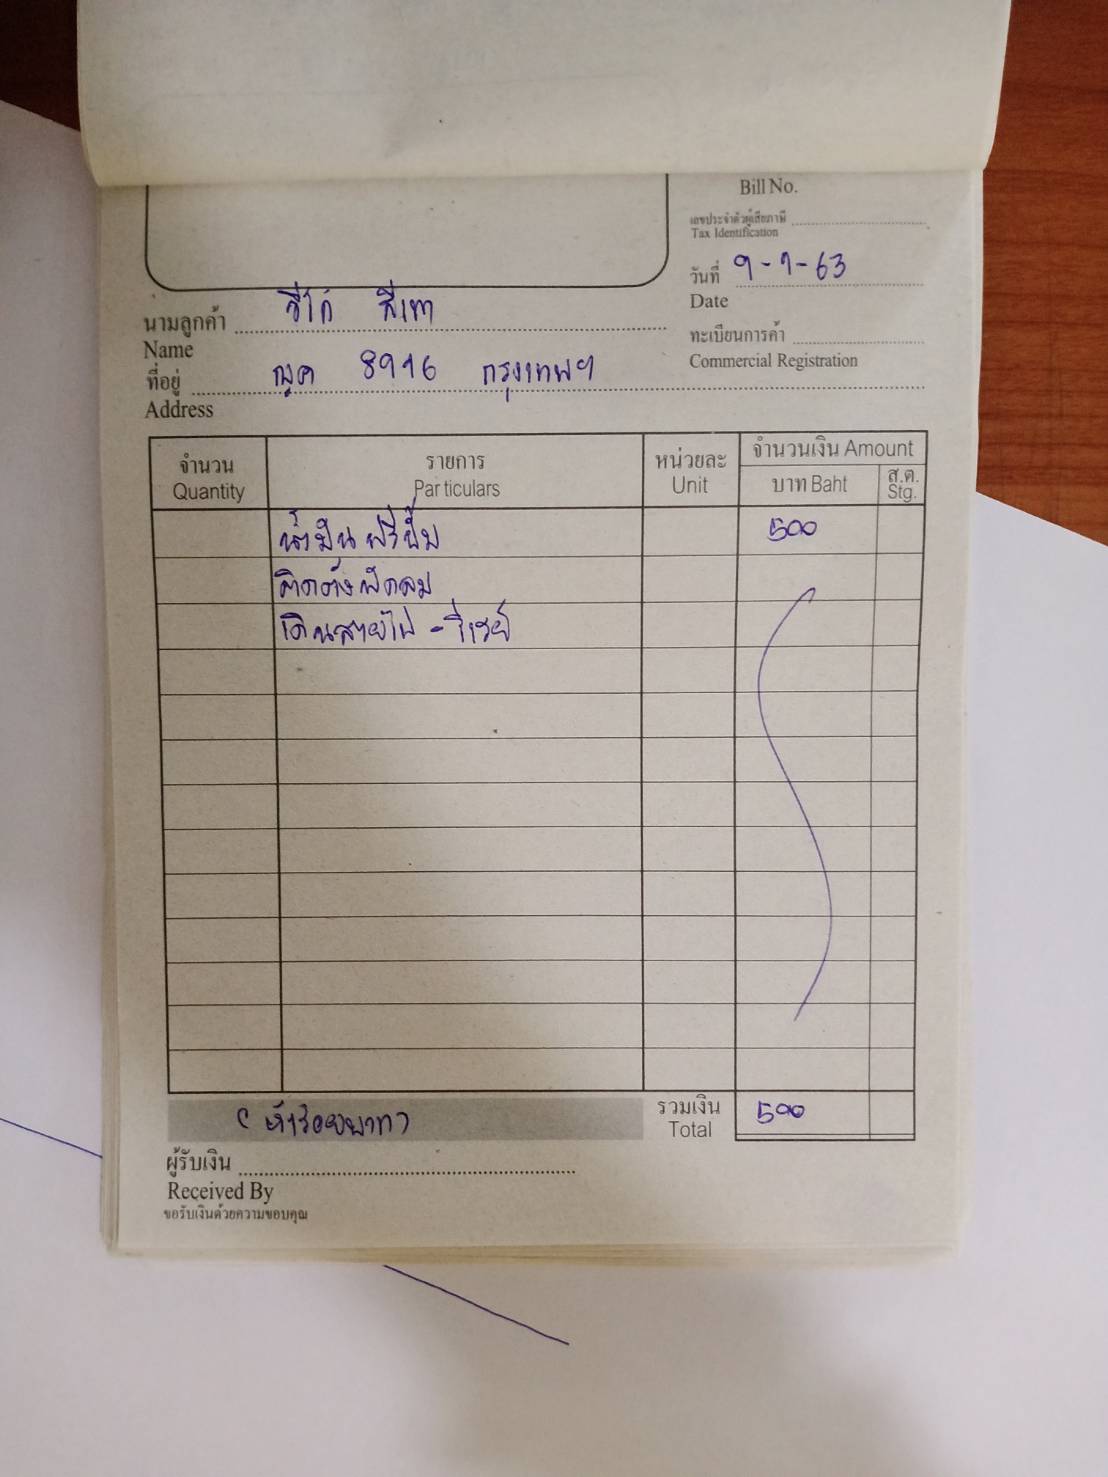 Bill No.
เลขประจำตัวผู้เสียภาษี
Tax Identification
วันที่ 9-9-63
Date
นามลูกค้า วีโก้ สีเทา
Name
ทะเบียนการค้า
Commercial Registration
ที่อยู่ ญค 8996 กรุงเทพฯ
Address
จำนวน รายการ หน่วยละ จำนวนเงิน Amount
Quantity Particulars Unit บาท Baht ส.ต. Stg.
น้ำมัน ฟรีปั๊ม 500
ติดตั้งพัดลม
เดินสายไฟ - รีเรย์
(ห้าร้อยบาท) รวมเงิน 500
Total
ผู้รับเงิน
Received By
ขอรับเงินด้วยความขอบคุณ